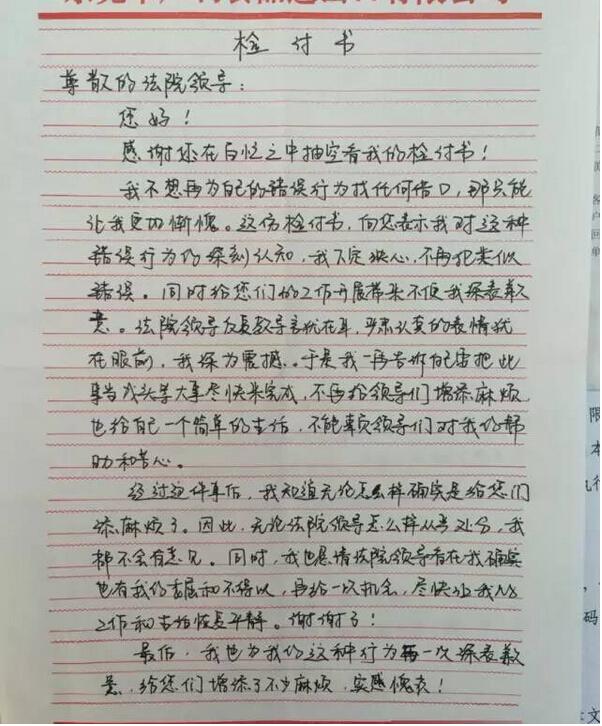 检付书
尊敬的法院领导：
您好！
感谢您在百忙之中抽空看我的检付书！
我不想再为自己的错误行为找任何借口，那只能
让我更加惭愧。这份检付书，向您表示我对这种
错误行为的深刻认知，我下定决心，不再犯类似
错误。同时给您们的工作开展带来不便我深表歉
意。法院领导反复教导言犹在耳，严肃认真的表情犹
在眼前，我深为震撼。于是我一再告诉自己要把此
事当成头等大事尽快来完成，不再给领导们增添麻烦
也给自己一个简单的生活，不能辜负领导们对我的帮
助和苦心。
经过这件事后，我知道无论怎么样确实是给您们
添麻烦了。因此，无论法院领导怎么样从严处分，我
都不会有意见。同时，我也恳请法院领导看在我确实
也有我的委屈和不得以，再给一次机会，尽快让我的
工作和生活恢复平静。谢谢了！
最后，我也为我的这种行为再一次深表歉
意，给您们增添了不少麻烦，实感愧表！
限
本
执行
码
文